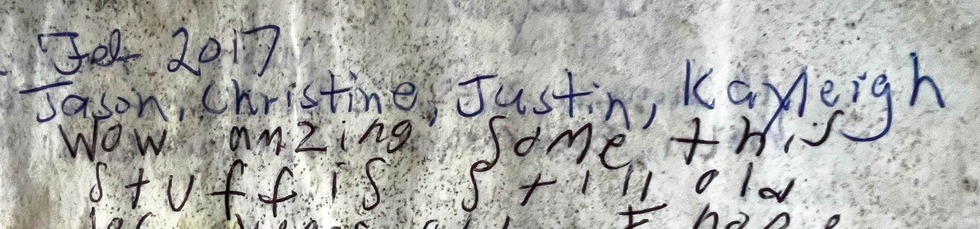 Feb 2017
Jason, Christine, Justin, Kayleigh
Wow amzing some this
stuff is still old
I hope